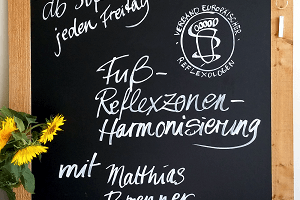 jeden Freitag
VERBAND EUROPÄISCHER
REFLEXOLOGEN
Fuß-
Reflexzonen-
Harmonisierung
mit Matthias